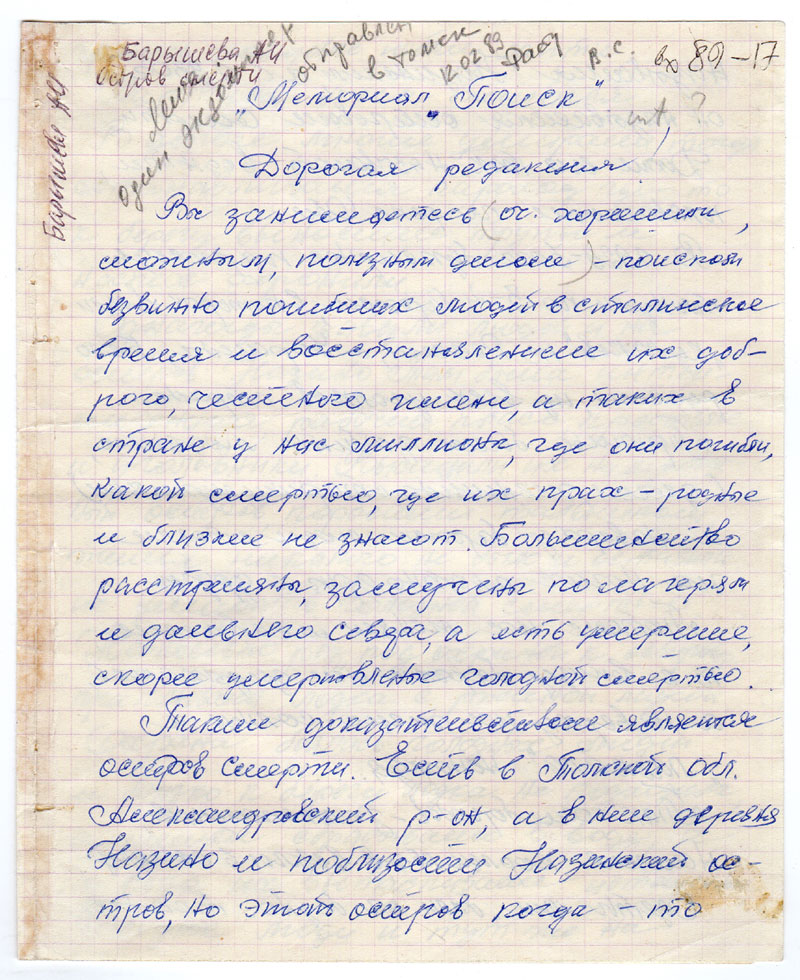 Барышева АИ
остров смерти
Барышева АИ
один экземпляр
отправлен
в Томск
12.02.89
В.С.
вх 89-17
"Мемориал", "Поиск"
?
Дорогая редакция!
Вы занимаетесь (оч. хорошим,
сложным, полезным делом) – поиском
безвинно погибших людей в сталинское
время и восстановлением их доб-
рого, честного имени, а таких в
стране у нас миллионы, где они погибли,
какой смертью, где их прах – родные
и близкие не знают. Большинство
расстреляны, замучены по лагерям
и дальнего севера, а есть умершие,
скорее умертвленые голодной смертью.
Таким доказательством является
остров смерти. Есть в Томской обл.
Александровский р-он, а в нем деревня
Назино и поблизости Назинский ос-
тров, но этот остров когда-то